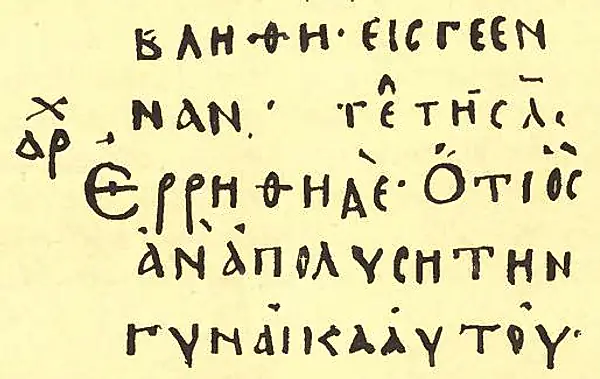 ΒΛΗΘΗ· ΕΙϹ ΓΕΕΝ
ΝΑΝ.
ΑΡΧ
ἘΡΡΗΘΗ ΔῈ· ὍΤΙ ὋϹ
ἈΝ ἈΠΟΛΥϹΗ ΤΗΝ
ΓΥΝΑΙΚΑ ΑΥΤΟΥ·